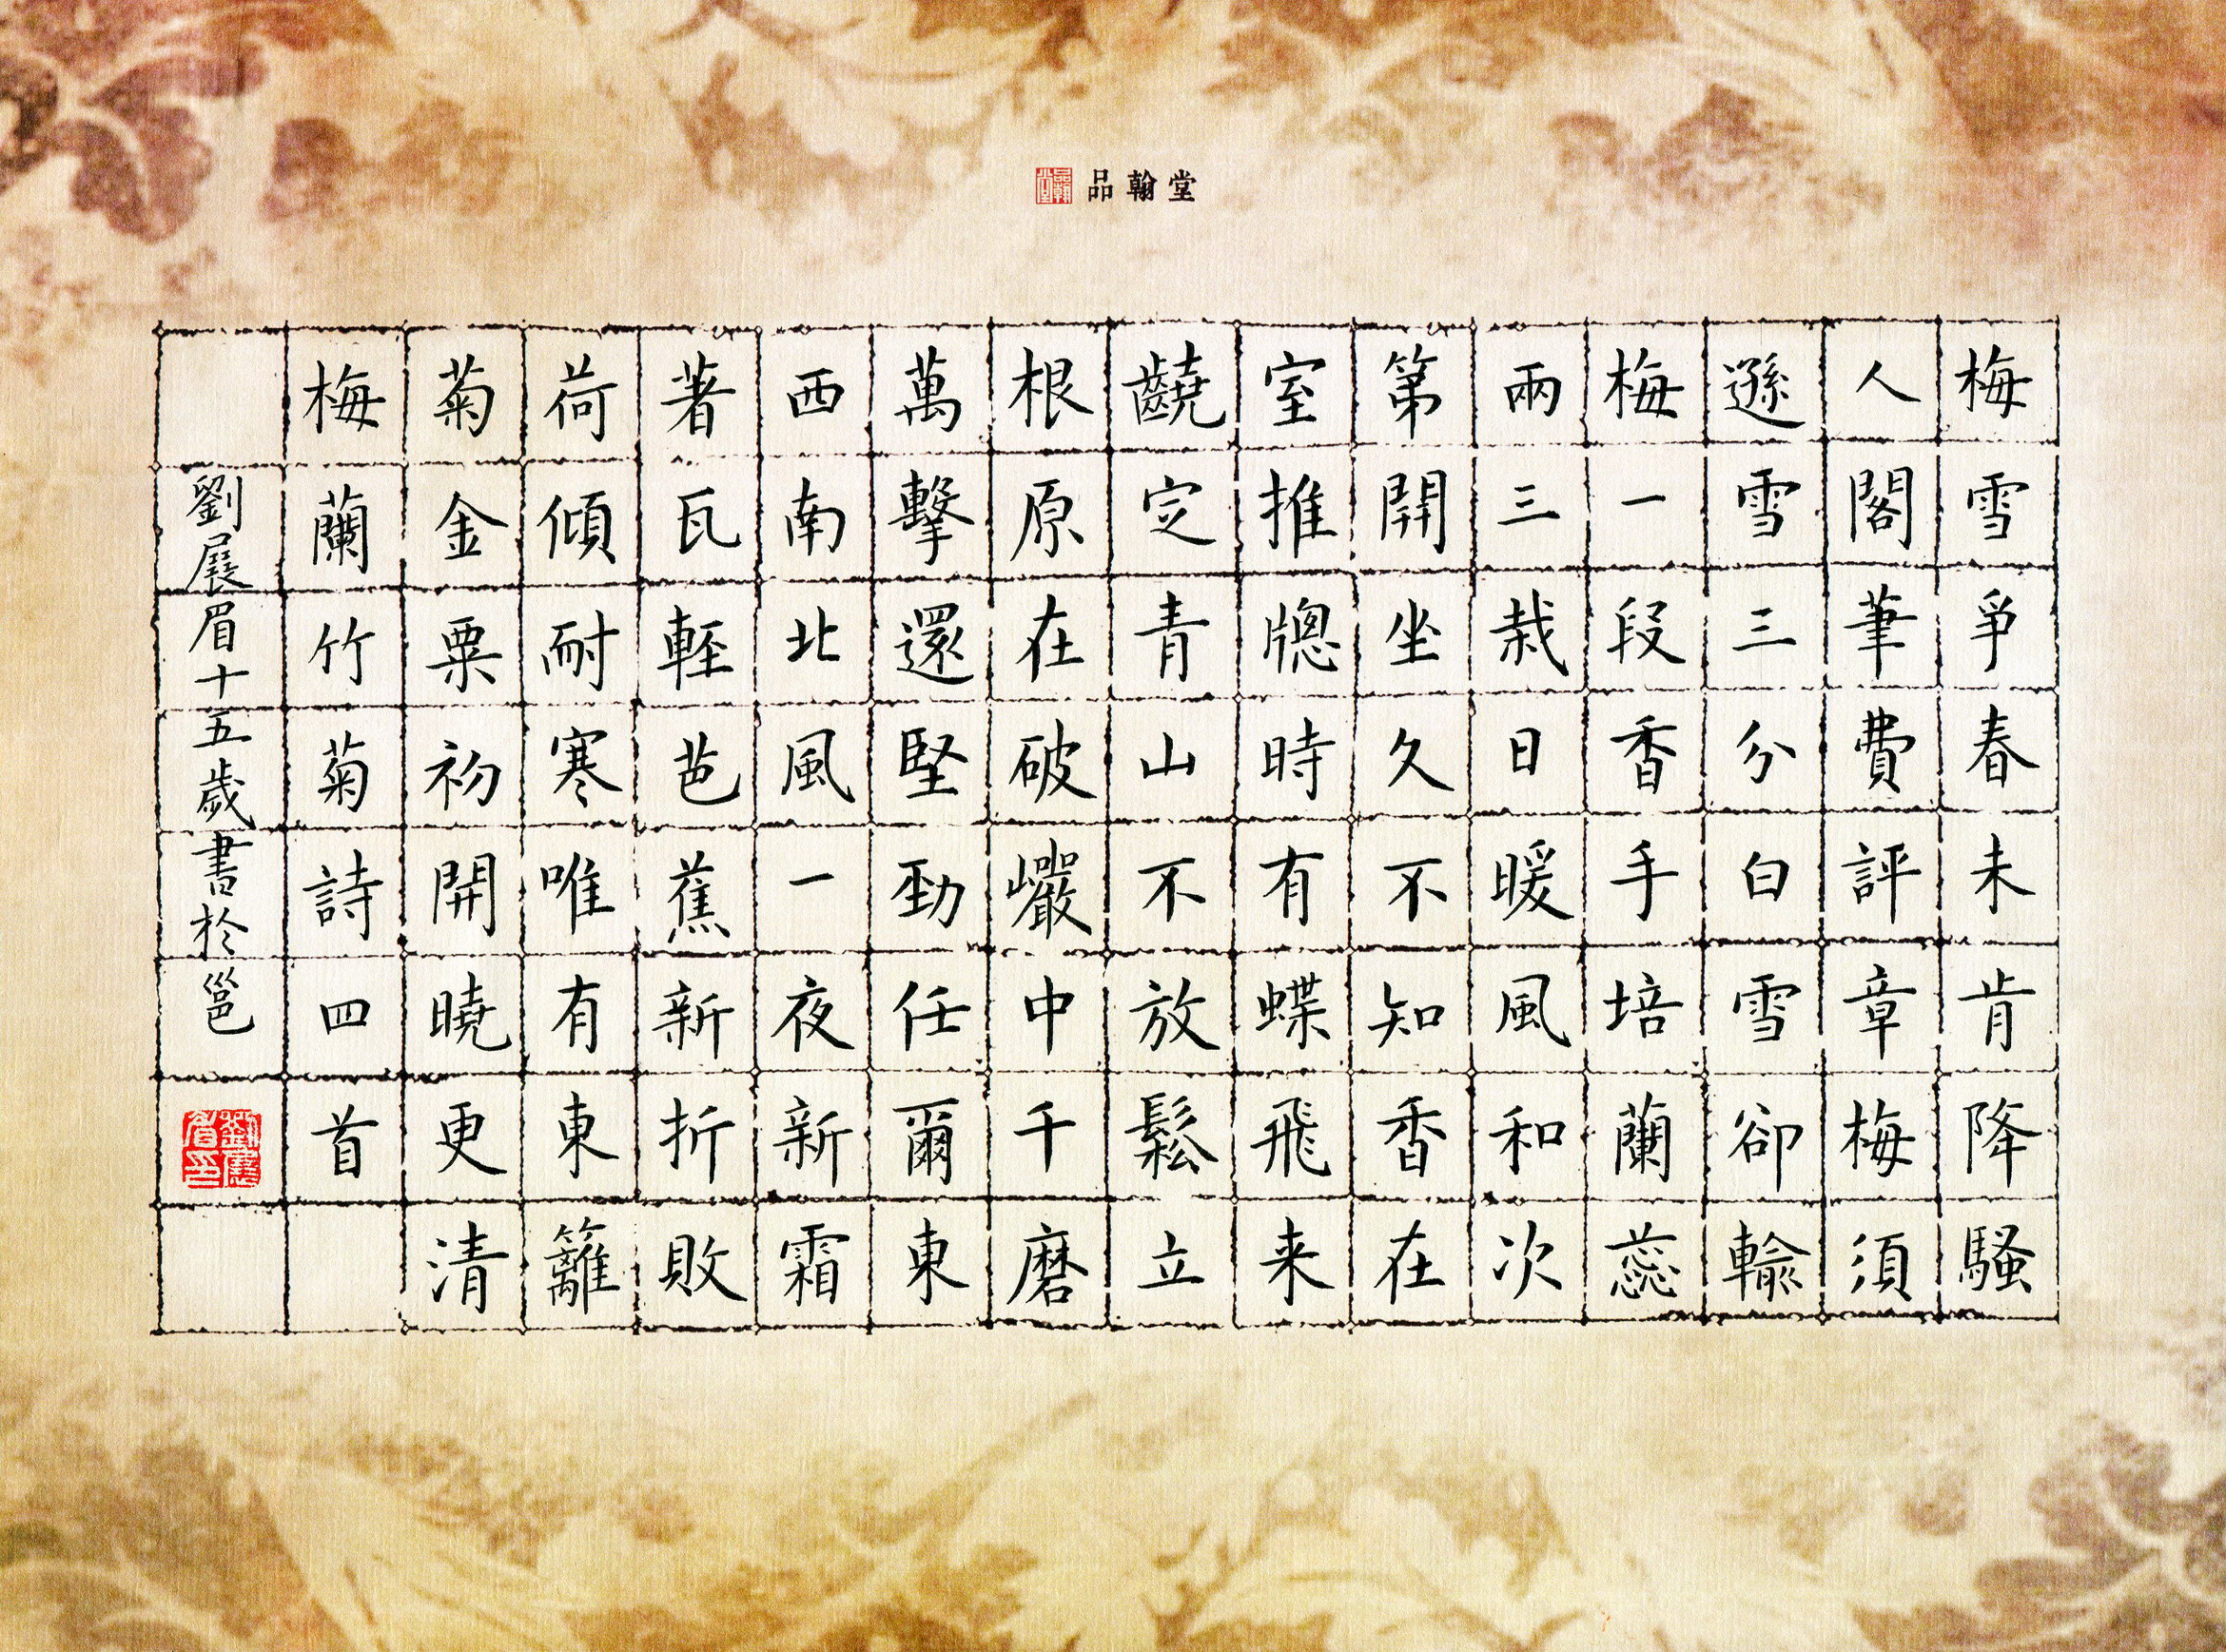 品翰堂
品翰堂
梅雪爭春未肯降騷
人閣筆費評章梅須
遜雪三分白雪卻輸
梅一段香手培蘭蕊
兩三栽日暖風和次
第開坐久不知香在
室推牕時有蝶飛来
䶧定青山不放鬆立
根原在破巗中千磨
萬擊還堅勁任爾東
西南北風一夜新霜
著瓦輕芭蕉新折敗
荷傾耐寒唯有東籬
菊金粟初開曉更清
梅蘭竹菊詩四首
劉展眉十五歲書於邕
劉展眉印